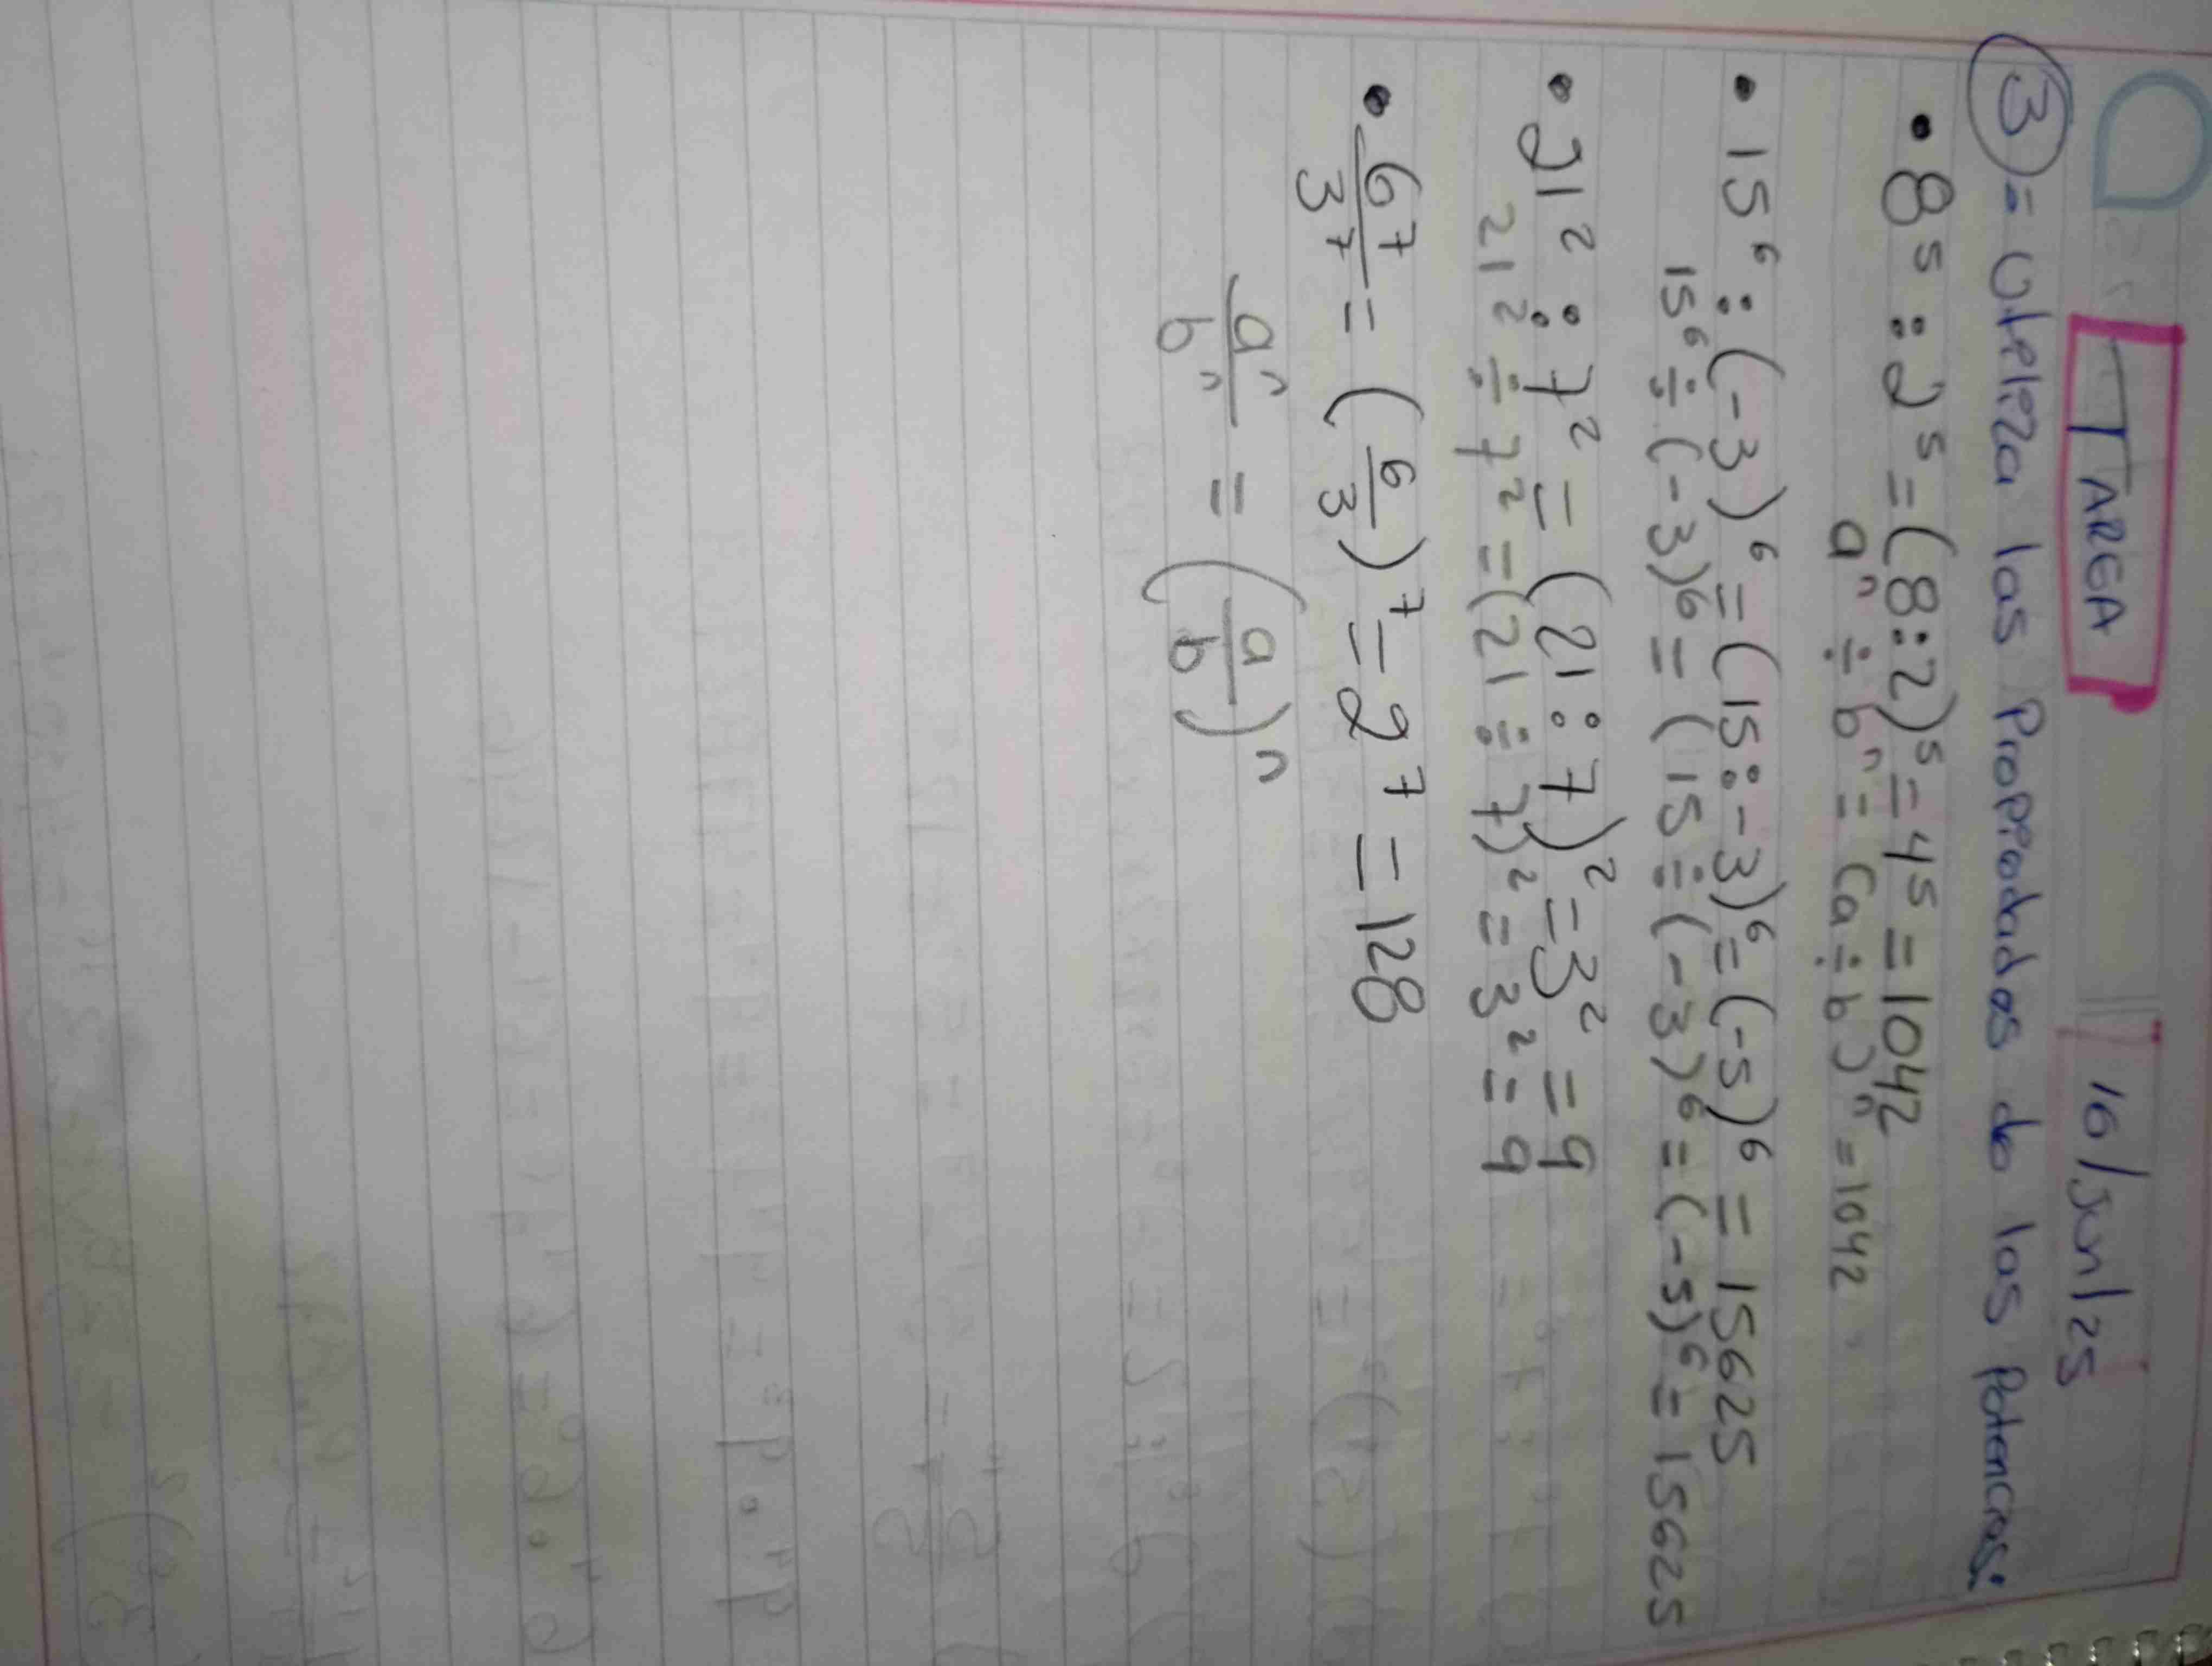 TAREA 16/Jun/25
3 = Utiliza las Propiedades de las Potencias:
• 8⁵ : 2⁵ = (8:2)⁵ = 4⁵ = 1042
aⁿ ÷ bⁿ = (a ÷ b)ⁿ = 1042
• 15⁶ : (-3)⁶ = (15:-3)⁶ = (-5)⁶ = 15625
15⁶ ÷ (-3)⁶ = (15 ÷ (-3)⁶ = (-5)⁶ = 15625
• 21² : 7² = (21 : 7)² = 3² = 9
21² ÷ 7² = (21 ÷ 7)² = 3² = 9
• 6⁷/3⁷ = (6/3)⁷ = 2⁷ = 128
aⁿ/bⁿ = (a/b)ⁿ